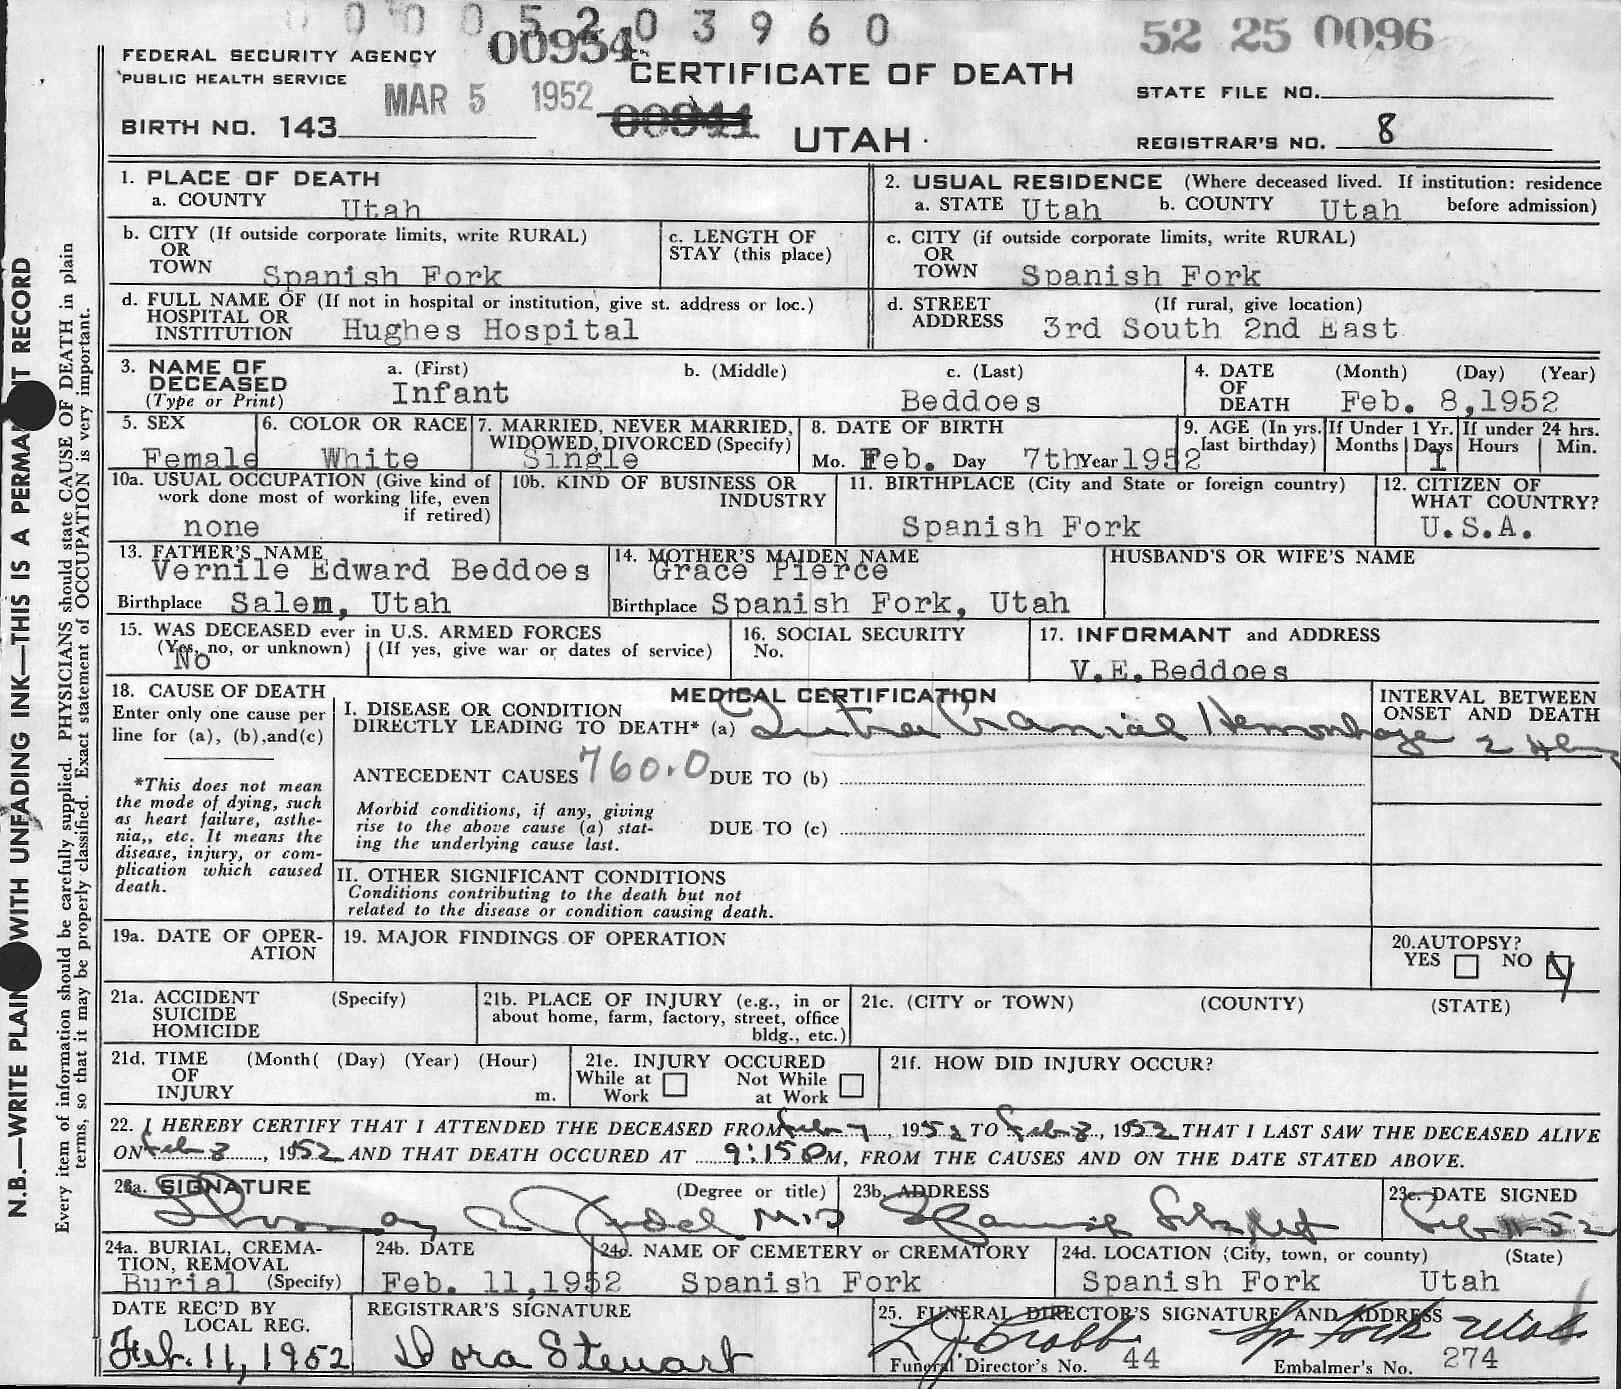 0 0 0 5 2 0 3 9 6 0
00954
52 25 0096
FEDERAL SECURITY AGENCY
PUBLIC HEALTH SERVICE
CERTIFICATE OF DEATH
MAR 5 1952
00941
STATE FILE NO.
BIRTH NO. 143
UTAH
REGISTRAR'S NO. 8
N.B.—WRITE PLAIN WITH UNFADING INK—THIS IS A PERMA T RECORD
Every item of information should be carefully supplied. PHYSICIANS should state CAUSE OF DEATH in plain
terms, so that it may be properly classified. Exact statement of OCCUPATION is very important.
1. PLACE OF DEATH
a. COUNTY Utah
2. USUAL RESIDENCE (Where deceased lived. If institution: residence
a. STATE Utah b. COUNTY Utah before admission)
b. CITY (If outside corporate limits, write RURAL)
OR
TOWN Spanish Fork
c. LENGTH OF
STAY (this place)
c. CITY (if outside corporate limits, write RURAL)
OR
TOWN Spanish Fork
d. FULL NAME OF (If not in hospital or institution, give st. address or loc.)
HOSPITAL OR
INSTITUTION Hughes Hospital
d. STREET (If rural, give location)
ADDRESS 3rd South 2nd East
3. NAME OF
DECEASED
(Type or Print)
a. (First)
Infant
b. (Middle)
c. (Last)
Beddoes
4. DATE (Month) (Day) (Year)
OF
DEATH Feb. 8,1952
5. SEX
Female
6. COLOR OR RACE
White
7. MARRIED, NEVER MARRIED,
WIDOWED, DIVORCED (Specify)
Single
8. DATE OF BIRTH
Mo. Feb. Day 7th Year 1952
9. AGE (In yrs. last birthday)
If Under 1 Yr.
Months Days
1
If under 24 hrs.
Hours Min.
10a. USUAL OCCUPATION (Give kind of
work done most of working life, even
if retired)
none
10b. KIND OF BUSINESS OR
INDUSTRY
11. BIRTHPLACE (City and State or foreign country)
Spanish Fork
12. CITIZEN OF
WHAT COUNTRY?
U.S.A.
13. FATHER'S NAME
Vernile Edward Beddoes
Birthplace Salem, Utah
14. MOTHER'S MAIDEN NAME
Grace Pierce
Birthplace Spanish Fork, Utah
HUSBAND'S OR WIFE'S NAME
15. WAS DECEASED ever in U.S. ARMED FORCES
(Yes, no, or unknown) (If yes, give war or dates of service)
No
16. SOCIAL SECURITY
No.
17. INFORMANT and ADDRESS
V.E.Beddoes
18. CAUSE OF DEATH
Enter only one cause per
line for (a), (b),and(c)
*This does not mean
the mode of dying, such
as heart failure, asthe-
nia,, etc. It means the
disease, injury, or com-
plication which caused
death.
MEDICAL CERTIFICATION
I. DISEASE OR CONDITION
DIRECTLY LEADING TO DEATH* (a) Intra Cranial Hemorrhage
ANTECEDENT CAUSES 760.0 DUE TO (b)
Morbid conditions, if any, giving
rise to the above cause (a) stat-
ing the underlying cause last.
DUE TO (c)
II. OTHER SIGNIFICANT CONDITIONS
Conditions contributing to the death but not
related to the disease or condition causing death.
INTERVAL BETWEEN
ONSET AND DEATH
2
19a. DATE OF OPER-
ATION
19. MAJOR FINDINGS OF OPERATION
20.AUTOPSY?
YES NO
21a. ACCIDENT (Specify)
SUICIDE
HOMICIDE
21b. PLACE OF INJURY (e.g., in or
about home, farm, factory, street, office
bldg., etc.)
21c. (CITY or TOWN) (COUNTY) (STATE)
21d. TIME (Month( (Day) (Year) (Hour)
OF
INJURY m.
21e. INJURY OCCURED
While at Work Not While at Work
21f. HOW DID INJURY OCCUR?
22. I HEREBY CERTIFY THAT I ATTENDED THE DECEASED FROM Feb 7, 1952 TO Feb 8, 1952 THAT I LAST SAW THE DECEASED ALIVE
ON Feb 8, 1952 AND THAT DEATH OCCURED AT 9:15 PM, FROM THE CAUSES AND ON THE DATE STATED ABOVE.
23a. SIGNATURE (Degree or title)
M.D
23b. ADDRESS
Spanish Fork
23c. DATE SIGNED
Feb 11-52
24a. BURIAL, CREMA-
TION, REMOVAL
Burial (Specify)
24b. DATE
Feb. 11,1952
24c. NAME OF CEMETERY or CREMATORY
Spanish Fork
24d. LOCATION (City, town, or county) (State)
Spanish Fork Utah
DATE REC'D BY
LOCAL REG.
Feb. 11, 1952
REGISTRAR'S SIGNATURE
Dora Stewart
25. FUNERAL DIRECTOR'S SIGNATURE AND ADDRESS
Sp Fork Utah
Funeral Director's No. 44
Embalmer's No. 274